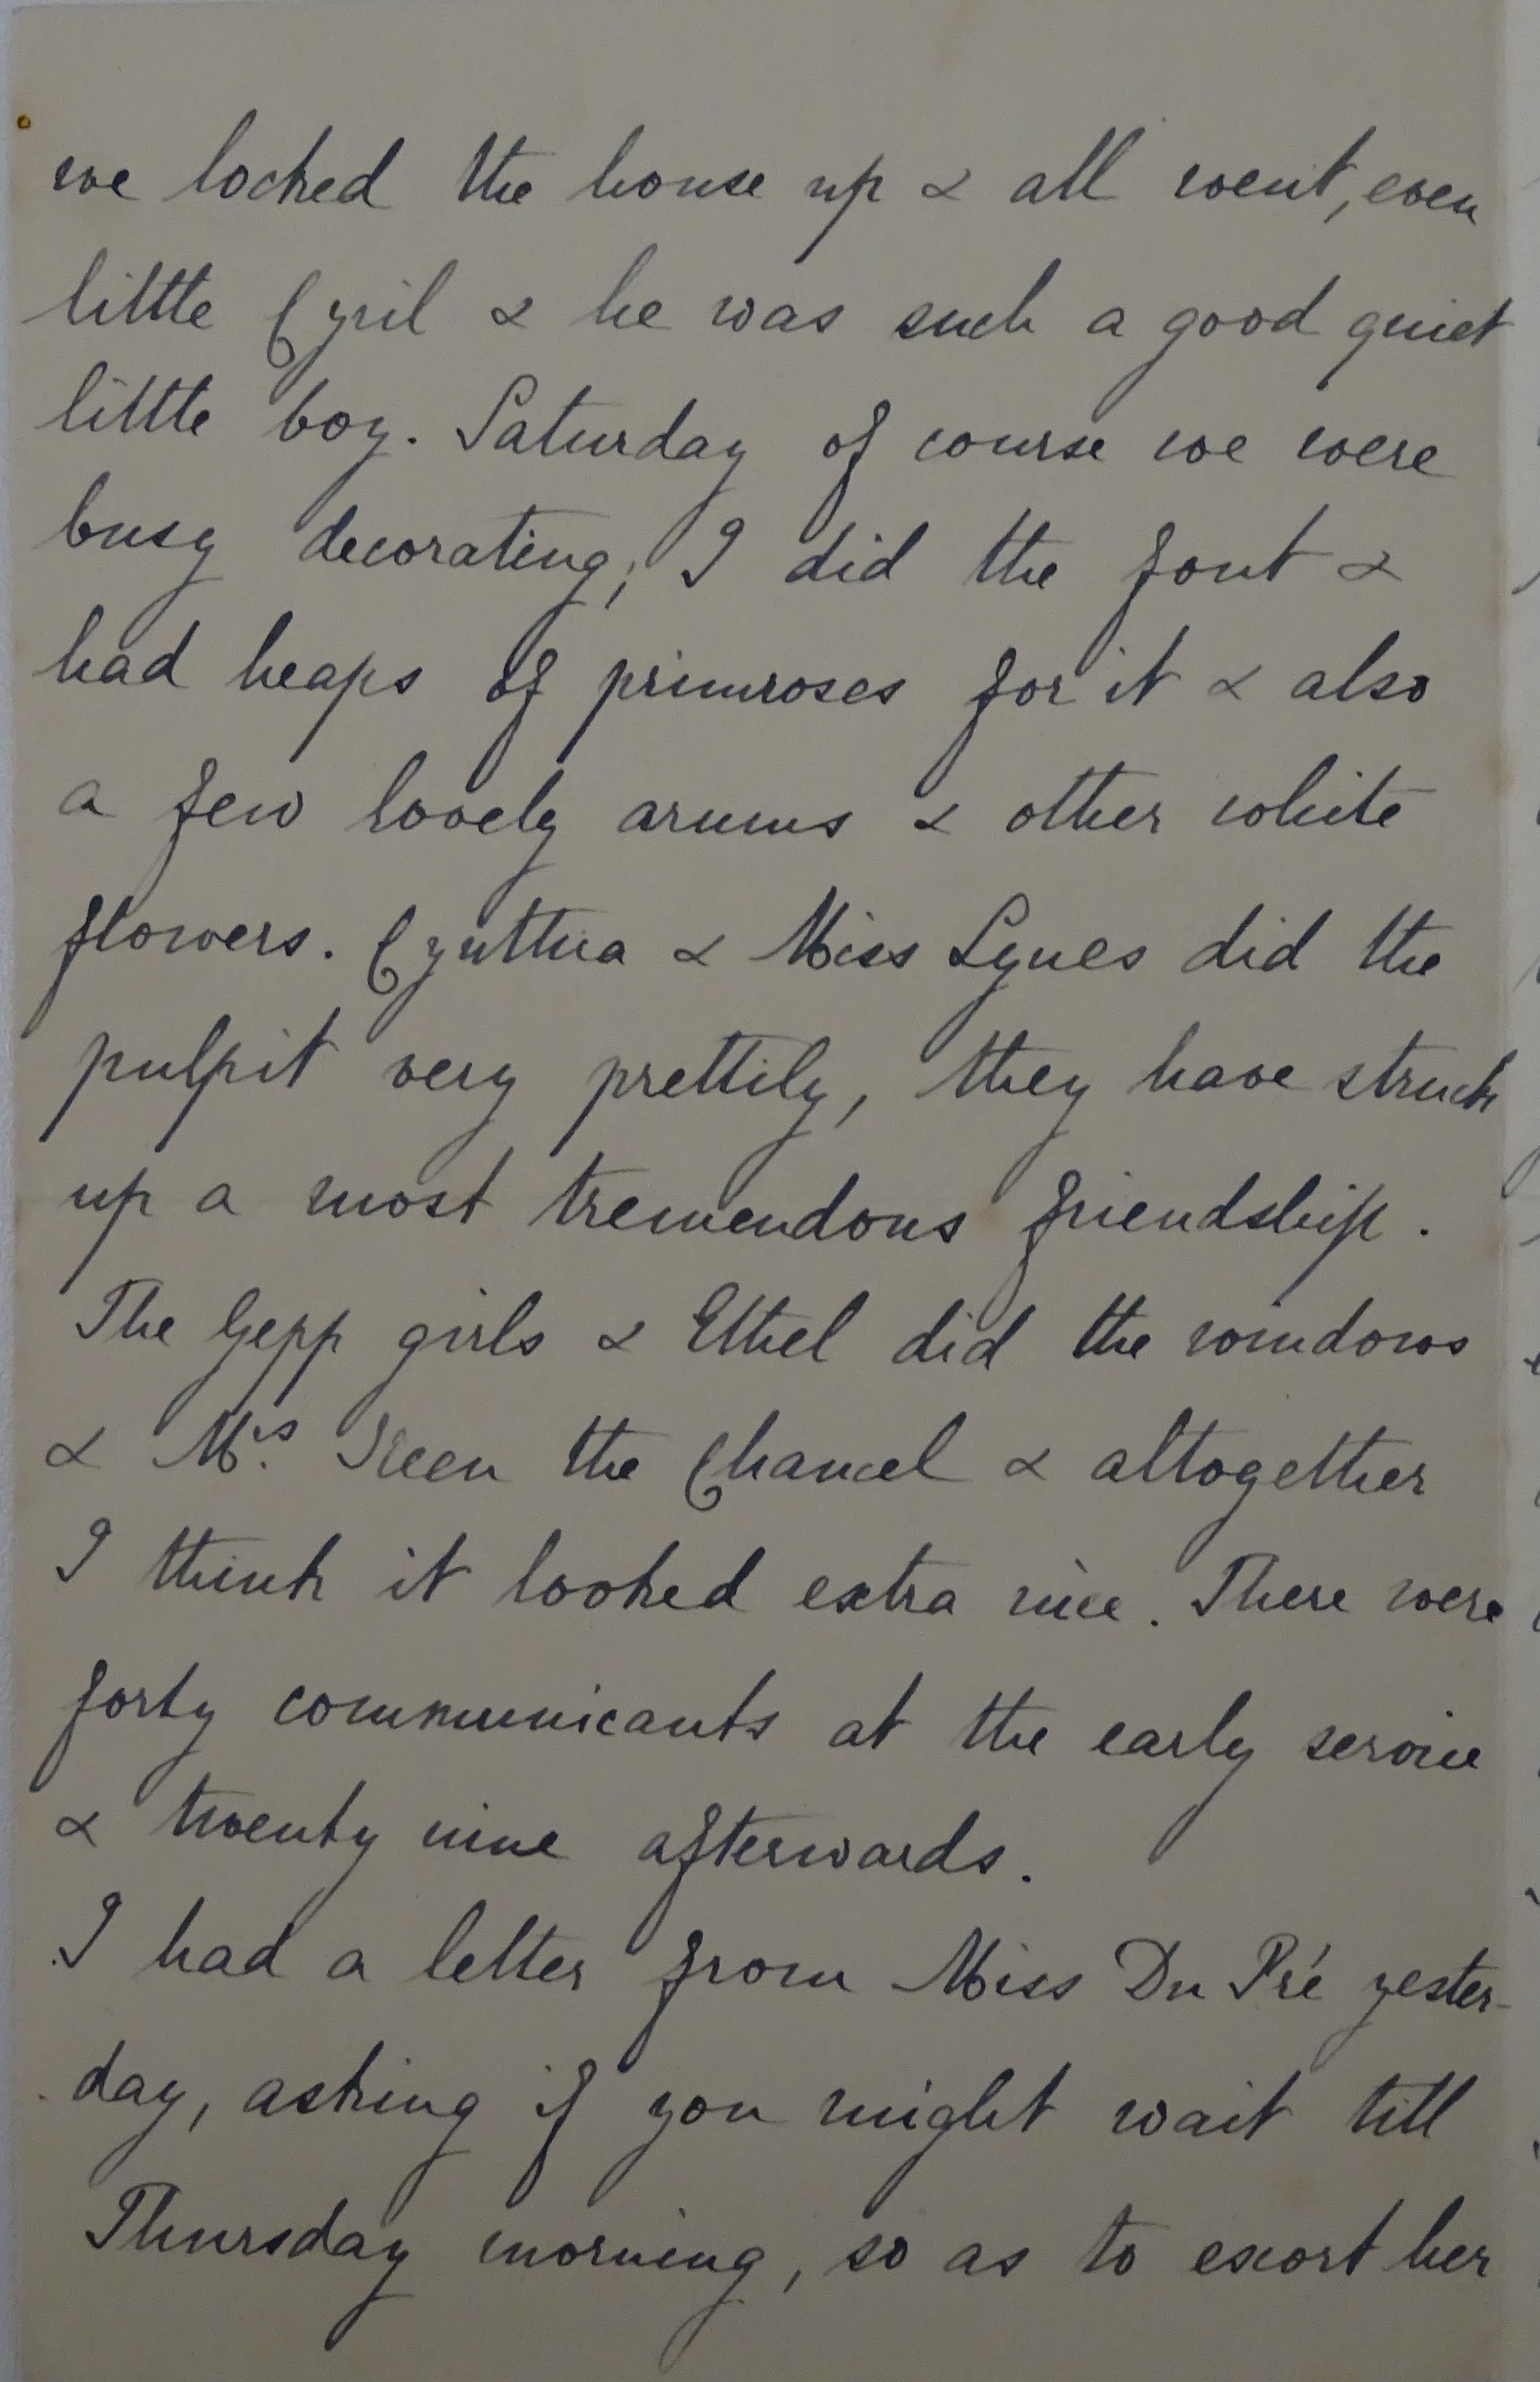 we locked the house up & all went, even
little Cyril & he was such a good quiet
little boy. Saturday of course we were
busy decorating; I did the font &
had heaps of primroses for it & also
a few lovely arums & other white
flowers. Cynthia & Miss Lynes did the
pulpit very prettily, they have struck
up a most tremendous friendship.
The Gepp girls & Ethel did the windows
& Mrs. the Chancel & altogether
I think it looked extra nice. There were
forty communicants at the early service
& twenty nine afterwards.
I had a letter from Miss Du Pré yester-
day, asking if you might wait till
Thursday morning, so as to escort her